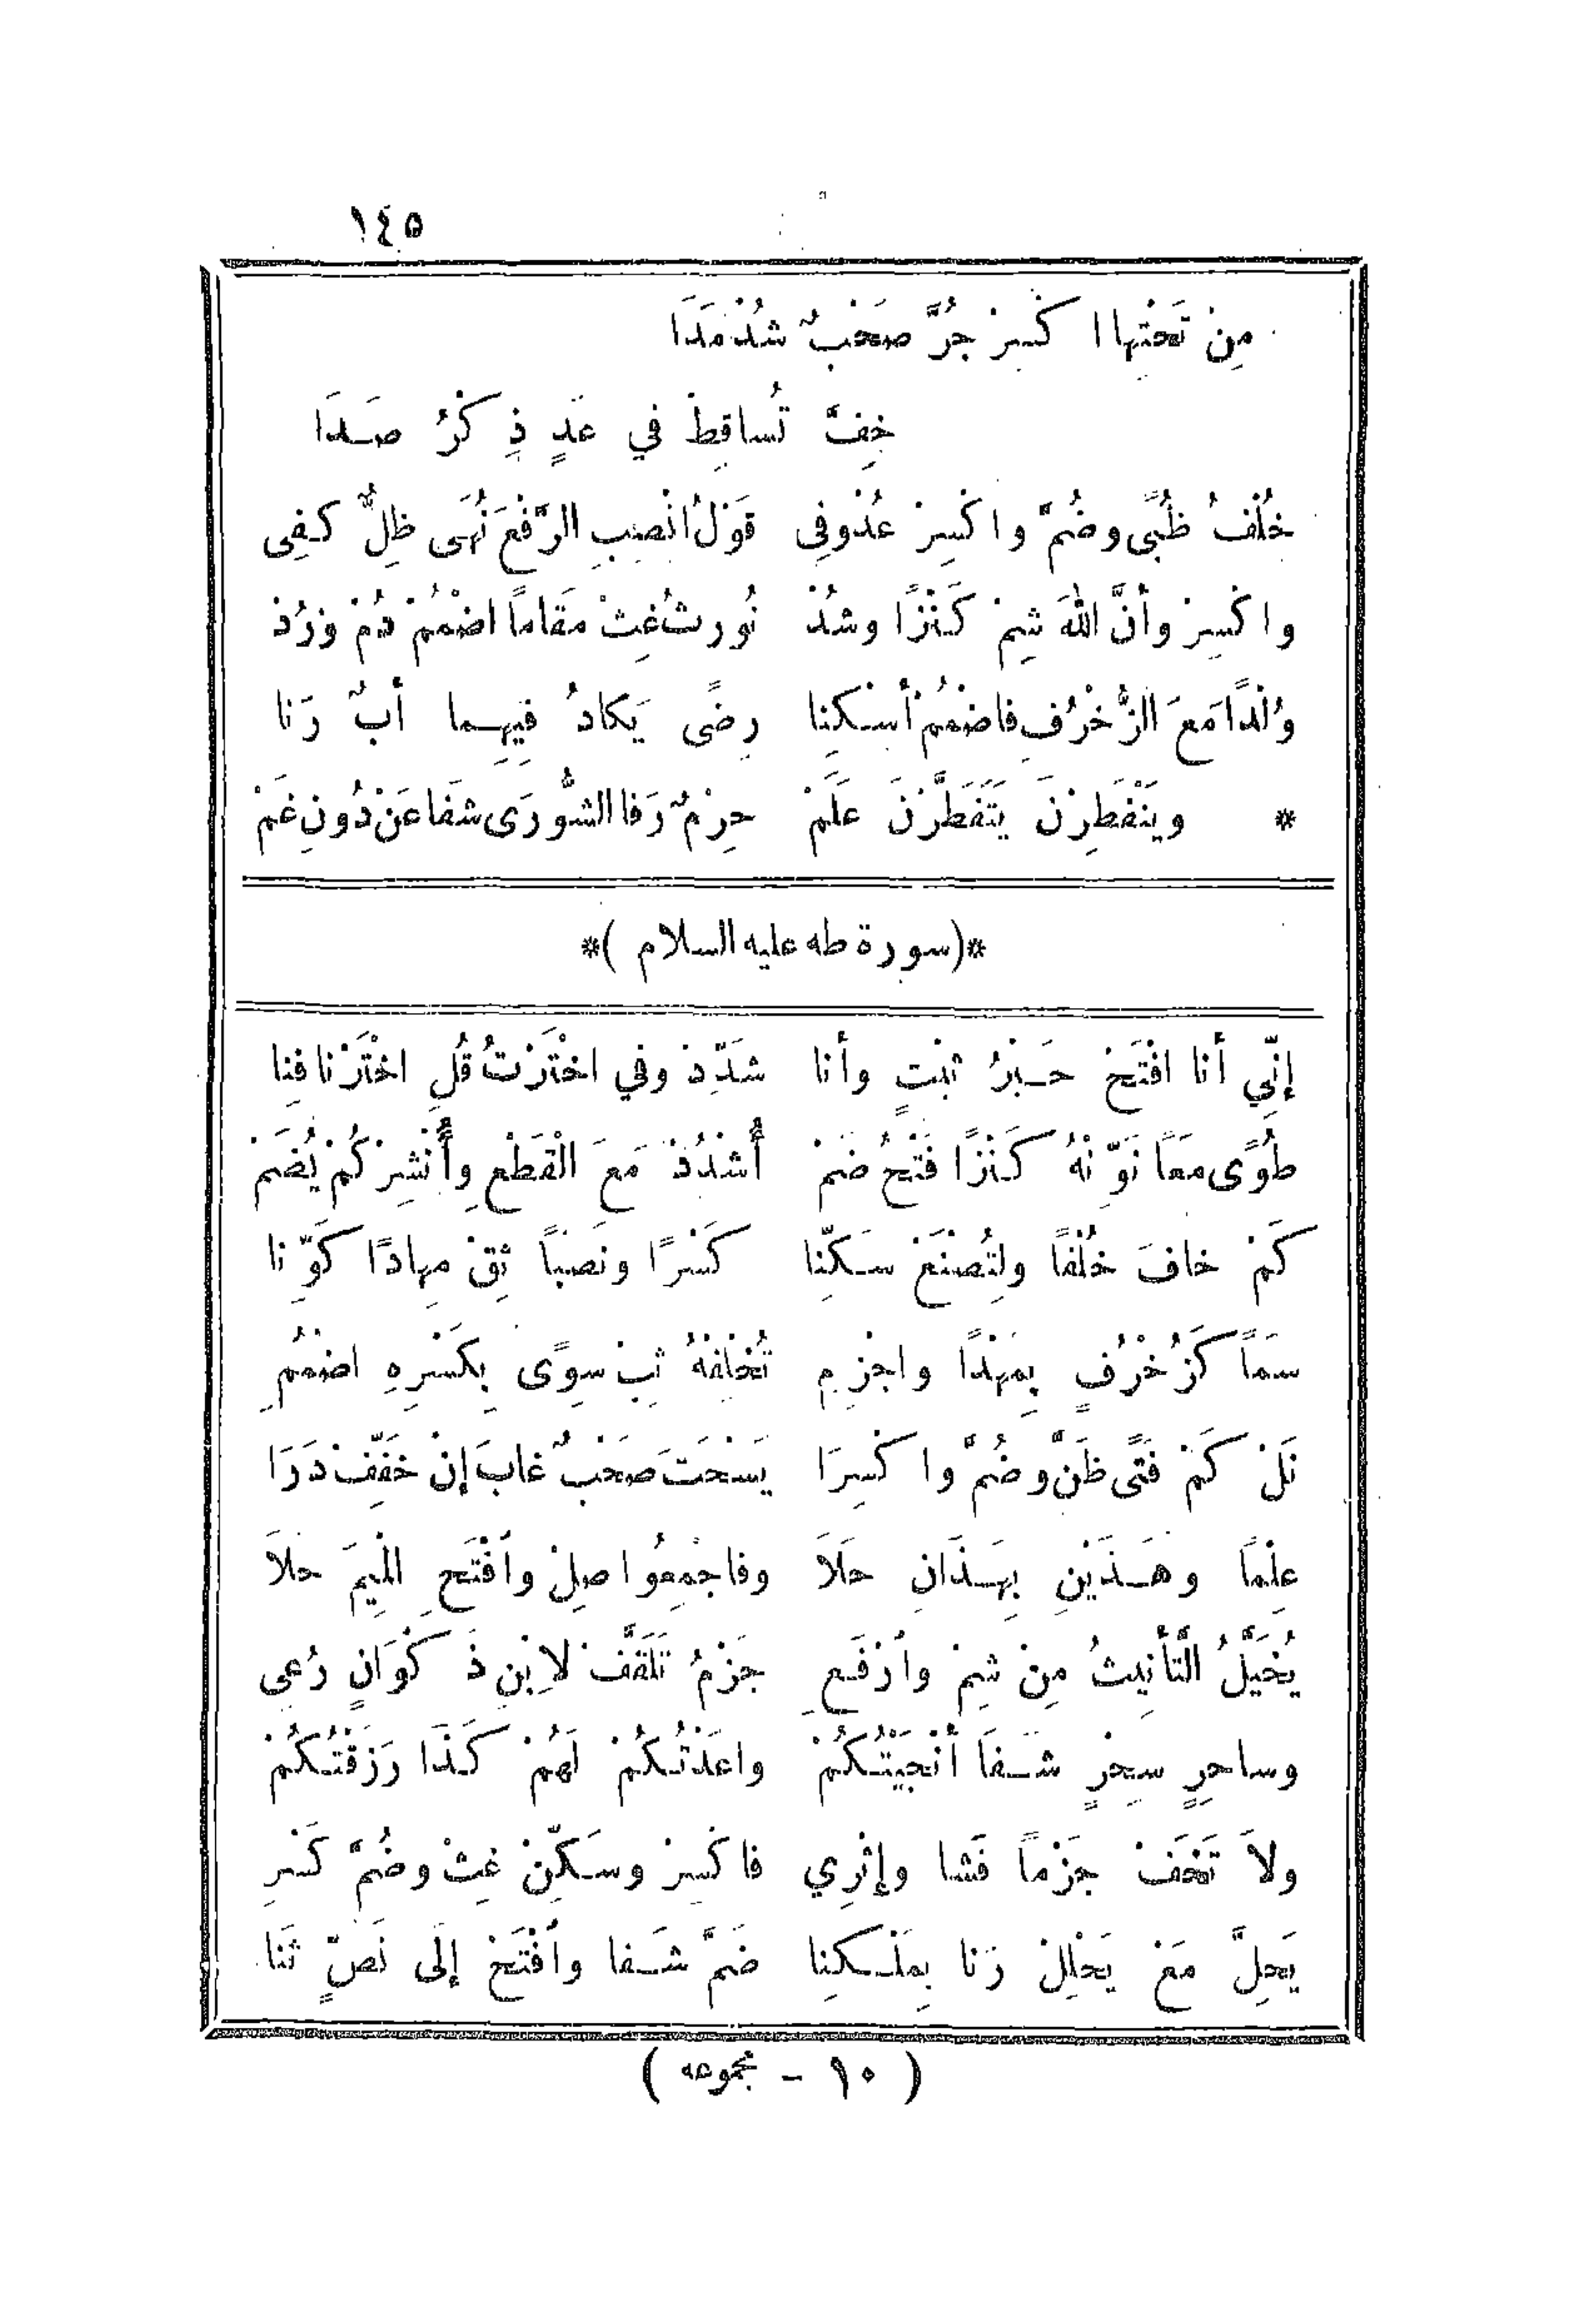 ١٤٥
مِنْ تَحْتِهَا اكْسِرْ جُرَّ صَحْبٌ شُدْ مَدَا
خِفَّ تُسَاقِطْ فِي عَدٍ ذِكْرُ صَدَا
خُلْفُ ظُبًى وضُمَّ واكْسِرْ عُدْ وفِي قَوْلُ انْصِبِ الرَّفْعَ نُهَى ظِلٌّ كَفِي
واكْسِرْ وأنَّ اللهَ شِمْ كَنْزًا وشُدْ نُورثُ غِثْ مَقَاماً اضْمُمْ دُمْ وزُدْ
وُلْدًا مَعَ الزُّخْرُفِ فاضْمُمْ أسْكِنا رِضًى يَكادُ فِيهِما أبٌ رَنا
* ويَنْفَطِرْنَ يَتَفَطَّرْنَ عَلَمْ حِرْمٌ رَقا الشُّورَى شَفا عَنْ دُونِ غَمْ
*(سورة طه عليه السلام)*
إنِّي أنا افْتَحْ حَبْرُ ثَبْتٍ وأنا شَدِّدْ وفي اخْتَرْتُ قُلِ اخْتَرْنا فِنا
طُوًى مَعَاً نَوِّنْهُ كَنْزًا فَتْحُ ضَمْ أَشْدُدْ مَعَ الْقَطْعِ وأُشْرِكْهُ يُضَمْ
كَمْ خافَ خُلْفاً ولِتُصْنَعْ سَكِّنا كَسْرًا ونَصْباً ثِقْ مِهادًا كَوِّنا
سَمَاً كَزُخْرُفٍ بِمَهْدًا واجْزِمِ نُخْلِفْهُ ثِبْ سِوًى بِكَسْرِهِ اضْمُمِ
نَلْ كَمْ فَتًى ظَنَّ وضُمَّ واكْسِرَا يَسْحَتَ صَحْبٌ غابَ إنْ خَفِّفْ دَرَا
عِلْماً وهَـذَيْنِ بِهَـذَانِ حَلاَ وفاجْمِعُوا صِلْ وافْتَحِ الْمِيمَ حَلاَ
يُخَيَّلُ التَّأنِيثُ مِنْ شِمْ وارْفَعِ جَزْمُ تَلَقَّفْ لاِبْنِ ذَكْوَانٍ رُعِي
وساحِرٍ سِحْرٍ شَفَا أنْجَيْتُكُمْ واعَدْتُكُمْ لَهُمْ كَذَا رَزَقْتُكُمْ
ولاَ تَخَفْ جَزْماً فَشا وإثْرِي فاكْسِرْ وسَكِّنْ غِثْ وضُمَّ كَسْرِ
يَحِلَّ مَعْ يَحْلِلْ رَنا بِمَلْكِنا ضَمَّ شَفا وافْتَحْ إلَى نَصٍّ ثَنا
( ١٠ - مجموعه )